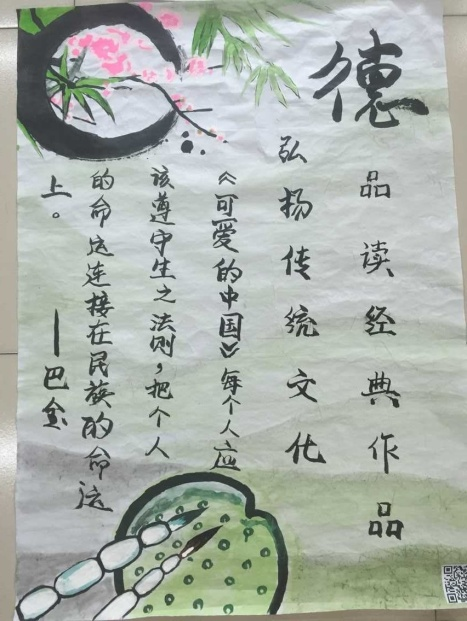 德
品读经典作品
弘扬传统文化
《可爱的中国》每个人应
该遵守生之法则，把个人
的命运连接在民族的命运
上。
——巴金